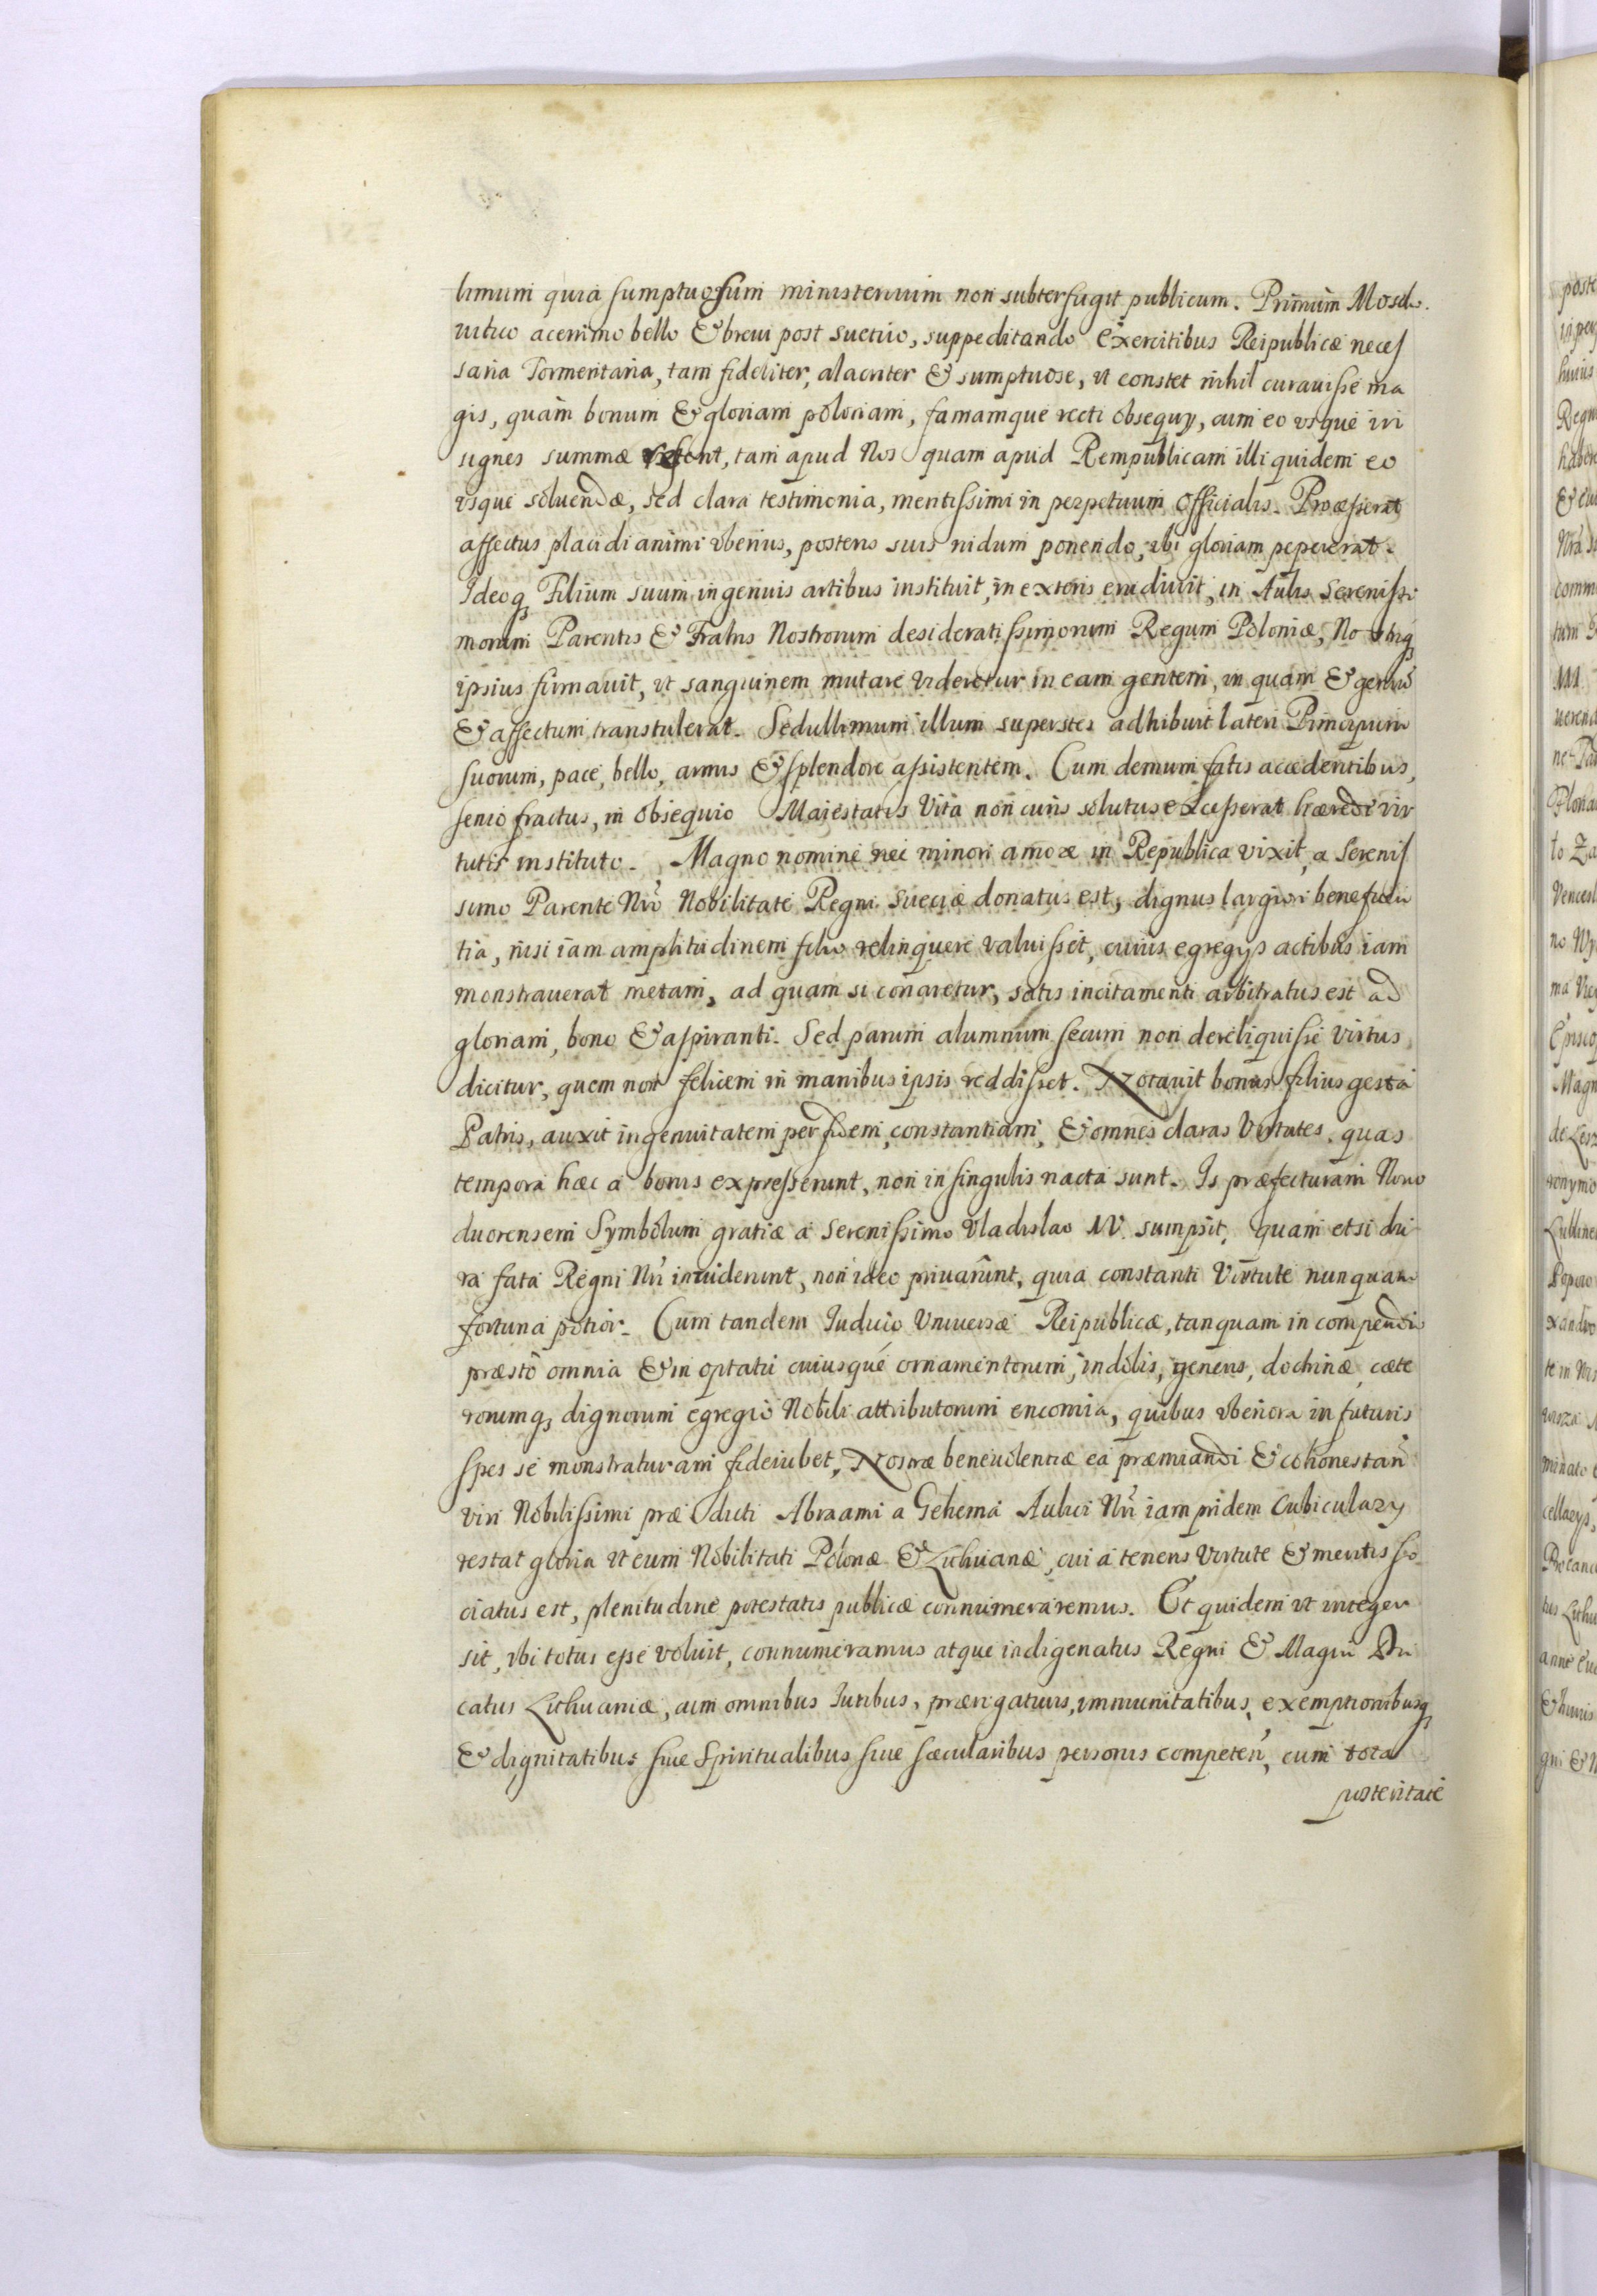 limum quia sumptuosum ministerium non subterfugit publicum. Primum Mosch.
uitico acerrimo bello & breui post Suetico, suppeditando Exercitibus Reipublicæ neces
saria Tormentaria, tam fideliter, alacriter & sumptuose, vt constet nihil curauisse ma
gis, quam bonum & gloriam polonam, famamque recti obsequy, cum eo vsque in
signes summæ restent, tam apud Nos quam apud Rempublicam illi quidem eo
vsque soluendæ, sed clara testimonia, meritissimi in perpetuum Officialis. Processerat
affectus placidi animi vberius, posteris suis nidum ponendo, vbi gloriam pepererat.
Ideoq Filium suum ingenuis artibus instituit, in exteris erudiuit, in Aulis Serenissi
morum Parentis & Fratris Nostrorum desideratissimorum Regum Poloniæ, No
ipsius firmauit, vt sanguinem mutare videretur in eam gentem, in quam & genus
& affectum transtulerat. Sedullimum illum superstes adhibuit lateri Principum
suorum, pace, bello, armis & splendore assistentem. Cum demum fatis accedentibus,
senio fractus, in obsequio Maiestatis Vita non curis solutus excesserat hærede vir
tutis instituto. Magno nomine nec minori amore in Republica vixit, a Serenis
simo Parente Nrõ Nobilitate Regni Sueciæ donatus est, dignus largiori beneficen
tia, nisi iam amplitudinem filio relinquere valuisset, cuius egregys actibus iam
monstrauerat metam, ad quam si conaretur, satis incitamenti arbitratus est ad
gloriam, bono & aspiranti. Sed parum alumnum secum non dereliquisse Virtus
dicitur, quem non felicem in manibus ipsis reddisset. Notauit bonus filius gesta
Patris, auxit ingenuitatem per fidem, constantiam, & omnes claras Virtutes, quas
tempora hæc a bonis expresserunt, non in singulis nacta sunt. Is præfecturam Nouo
duorensem Symbolum gratiæ a Serenissimo Vladislao IV. sumpsit, quam etsi du
ra fata Regni Nri inuiderunt, non ideo priuarunt, quia constanti Virtute nunquam
fortuna potior. Cum tandem Iudicio Vniuersæ Reipublicæ, tanquam in compendio
præsto omnia & in optatu cuiusque ornamentorum, indolis, generis, doctrinæ, cæte
rorumq dignorum egregio Nobili attributorum encomia, quibus vberiora in futuris
spes se monstraturam fideiubet, Nostræ beneuolentiæ ea præmiandi & cohonestan
viri Nobilissimi prædicti Abraami a Gehema Aulici Nri iam pridem Cubiculary
restat gloria vt eum Nobilitati Polonæ & Lithuanæ, cui a teneris Virtute & meritis so
ciatus est, plenitudine potestatis publicæ connumeraremus. Et quidem vt integer
sit, vbi totus esse voluit, connumeramus atque indigenatus Regni & Magni Du
catus Lithuaniæ, cum omnibus Iuribus, prærogatiuis, immunitatibus, exemptionibusq
& dignitatibus siue Spiritualibus siue sæcularibus personis competen, cum tota
posteritate